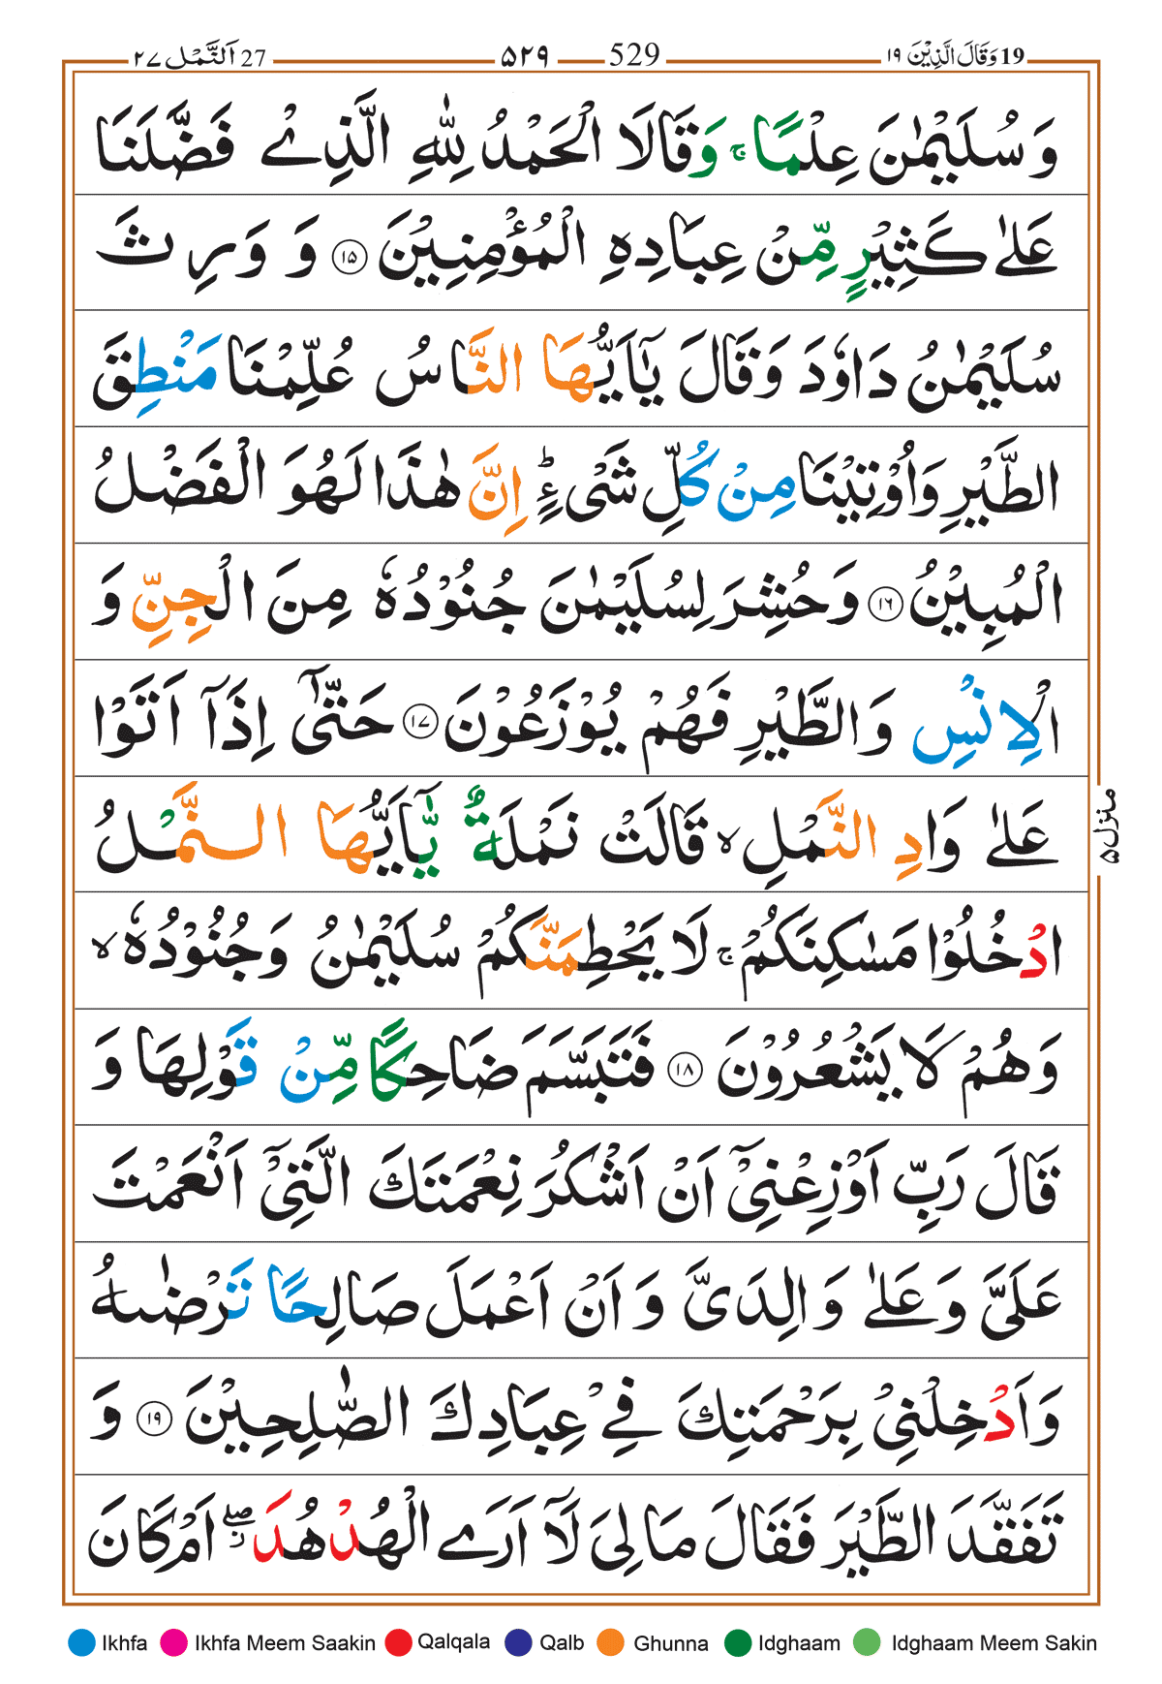 19 وَقَالَ الَّذِيْنَ ١٩
529 ۵۲۹
27 اَلنَّمْل ٢٧
وَ سُلَيْمٰنَ عِلْمًا ۚ وَقَالَا الْحَمْدُ لِلّٰهِ الَّذِيْ فَضَّلَنَا
عَلٰى كَثِيْرٍ مِّنْ عِبَادِهِ الْمُؤْمِنِيْنَ ١٥ وَ وَرِثَ
سُلَيْمٰنُ دَاوٗدَ وَقَالَ يٰٓاَيُّهَا النَّاسُ عُلِّمْنَا مَنْطِقَ
الطَّيْرِ وَاُوْتِيْنَا مِنْ كُلِّ شَىْءٍ ؕ اِنَّ هٰذَا لَهُوَ الْفَضْلُ
الْمُبِيْنُ ١٦ وَحُشِرَ لِسُلَيْمٰنَ جُنُوْدُهٗ مِنَ الْجِنِّ وَ
الْاِنْسِ وَالطَّيْرِ فَهُمْ يُوْزَعُوْنَ ١٧ حَتّٰٓى اِذَآ اَتَوْا
عَلٰى وَادِ النَّمْلِ ۙ قَالَتْ نَمْلَةٌ يّٰٓاَيُّهَا النَّمْلُ
ادْخُلُوْا مَسٰكِنَكُمْ ۚ لَا يَحْطِمَنَّكُمْ سُلَيْمٰنُ وَجُنُوْدُهٗ ۙ
وَهُمْ لَا يَشْعُرُوْنَ ١٨ فَتَبَسَّمَ ضَاحِكًا مِّنْ قَوْلِهَا وَ
قَالَ رَبِّ اَوْزِعْنِيْٓ اَنْ اَشْكُرَ نِعْمَتَكَ الَّتِيْٓ اَنْعَمْتَ
عَلَىَّ وَعَلٰى وَالِدَىَّ وَاَنْ اَعْمَلَ صَالِحًا تَرْضٰىهُ
وَاَدْخِلْنِيْ بِرَحْمَتِكَ فِيْ عِبَادِكَ الصّٰلِحِيْنَ ١٩ وَ
تَفَقَّدَ الطَّيْرَ فَقَالَ مَا لِىَ لَآ اَرَى الْهُدْهُدَ ۖ ز اَمْ كَانَ
منزل۵
Ikhfa Ikhfa Meem Saakin Qalqala Qalb Ghunna Idghaam Idghaam Meem Sakin